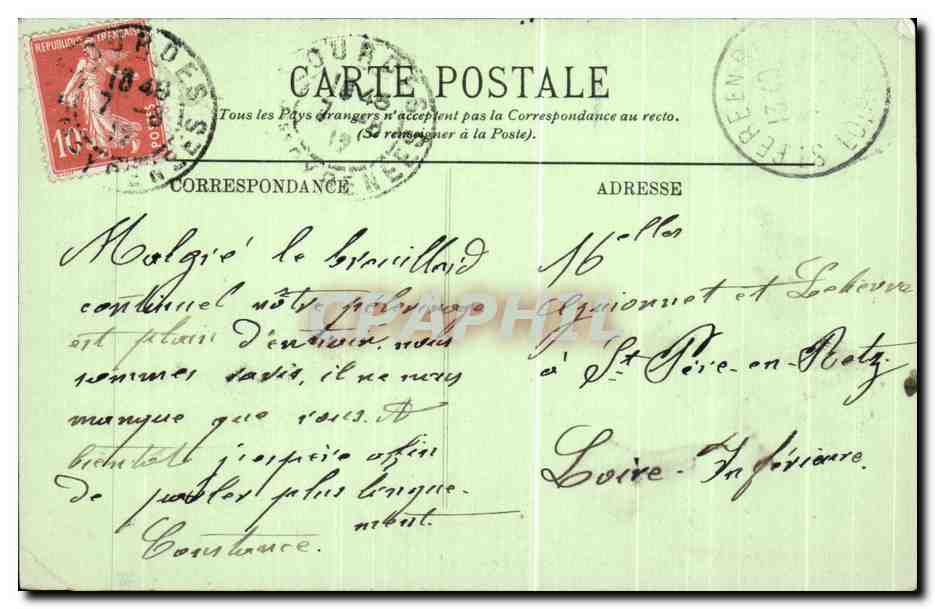 REPUBLIQUE FRANÇAISE
10 c
POSTES
LOURDES
10 45
7
PYRENEES
LOURDES
10 45
7
PYRENEES
CARTE POSTALE
Tous les Pays étrangers n'acceptent pas la Correspondance au recto.
(Se renseigner à la Poste).
ST PERE EN R
LOIRE
CORRESPONDANCE
Malgré le brouillard
continuel nôtre pélerinage
est plain d'entrain. nous
sommes ravis, il ne nous
manque que vous. A
bientôt j'espère afin
de parler plus longue-
ment.
Constance.
ADRESSE
Melles
Guionnet et
à St Père-en-Retz
Loire-Inférieure.
CPAPHIL